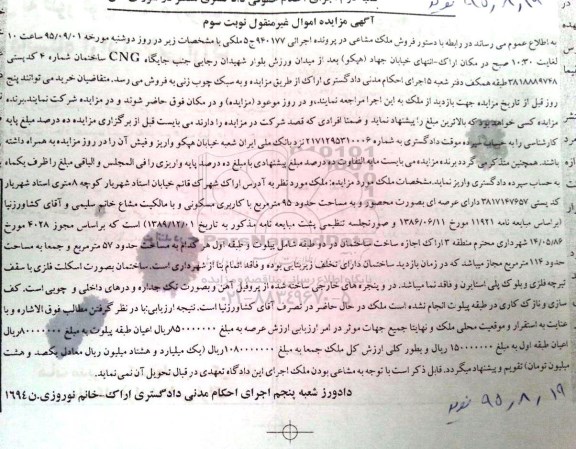 ۹۵٫۸٫۱۹ نوید
آگهی مزایده اموال غیرمنقول نوبت سوم
به اطلاع عموم می رساند در رابطه با دستور فروش ملک مشاعی در پرونده اجرائی ۹۴۰۱۷۷ج۵ ملکی با مشخصات زیر در روز دوشنبه مورخه ۹۵/۰۹/۰۱ ساعت ۱۰
لغایت ۱۰:۳۰ صبح در مکان اراک-انتهای خیابان جهاد (هپکو) بعد از میدان ورزش بلوار شهیدان رجایی جنب جایگاه CNG ساختمان شماره ۴ کدپستی
۳۸۱۸۸۸۹۷۶۸ طبقه همکف دفتر شعبه ۵ اجرای احکام مدنی دادگستری اراک از طریق مزایده و به سبک چوب زنی به فروش می رسد. متقاضیان خرید می توانند پنج
روز قبل از تاریخ مزایده جهت بازدید از ملک به این اجرا مراجعه نمایند.و در روز موعود (مزایده) و در مکان فوق حاضر شوند و در مزایده شرکت نمایند.برنده
مزایده کسی خواهد بود که بالاترین مبلغ را پیشنهاد نماید و ضمنا افرادی که قصد شرکت در مزایده را دارند می بایست قبل از برگزاری مزایده ده درصد مبلغ پایه
کارشناسی را به حساب سپرده موقت دادگستری به شماره ۲۱۷۱۲۹۵۳۱۰۰۰۶ نزد بانک ملی ایران شعبه خیابان هپکو واریز و فیش آن را در روز مزایده به همراه داشته
باشند. همچنین متذکر می گردد برنده مزایده می بایست مابه التفاوت ده درصد مبلغ پیشنهادی با مبلغ ده درصد پایه واریزی را فی المجلس و الباقی مبلغ را ظرف یکماه
به حساب سپرده دادگستری واریز نماید.مشخصات ملک مورد مزایده: ملک مورد نظر به آدرس اراک شهرک قائم خیابان استاد شهریار کوچه ۸متری استاد شهریار
کد پستی ۳۸۱۷۱۴۷۶۵۷ دارای عرصه ای بصورت محصور و به مساحت حدود ۹۵ مترمربع با کاربری مسکونی و با مالکیت مشاع خانم سلیمی و آقای کشاورزنیا
(براساس مبایعه نامه ۱۱۹۲۱ مورخ ۱۳۸۶/۰۶/۱۱ و صورتجلسه تنظیمی پشت مبایعه نامه مذکور به تاریخ ۱۳۸۹/۱۲/۰۱) است که براساس مجوز ۴۰۲۸ مورخ
۱۴/۰۵/۸۶ شهرداری محترم منطقه ۳ اراک اجازه ساخت ساختمان در دو طبقه شامل پیلوت و طبقه اول هر کدام به مساحت حدود ۵۷ مترمربع و جمعا به مساحت
حدود ۱۱۴ مترمربع مجاز میباشد که در زمان بازدید ساختمان دارای تخلف زیربنایی بوده و فاقد اتمام بنا از شهرداری است. ساختمان بصورت اسکلت فلزی با سقف
تیرچه فلزی و بلوک پلی استایرن و فاقد نما میباشد. در و پنجره های خارجی ساخته شده از پروفیل آهن و بصورت تک جداره و درهای داخلی و چوبی است. کف
سازی و نازک کاری در طبقه پیلوت انجام نشده است ملک در حال حاضر در تصرف آقای کشاورزنیا است. نتیجه ارزیابی:با در نظر گرفتن مطالب فوق الاشاره و با
عنایت به استقرار و موقعیت محلی ملک و نهایتا جمیع جهات موثر در امر ارزیابی ارزش عرصه به مبلغ
اعیان طبقه اول به مبلغ ریال و بطور کلی ارزش کل ملک جمعا به مبلغ ریال (یک میلیارد و هشتاد میلیون ریال معادل یکصد و هشت
میلیون تومان) تقویم و پیشنهاد میگردد. قابل ذکر است با توجه به مشاعی بودن ملک اجرای این دادگاه تعهدی در قبال تحویل آن نمی نماید.
دادورز شعبه پنجم اجرای احکام مدنی دادگستری اراک- خانم نوروزی.ن ۱۶۹۴
۹۵٫۸٫۱۹ نوید